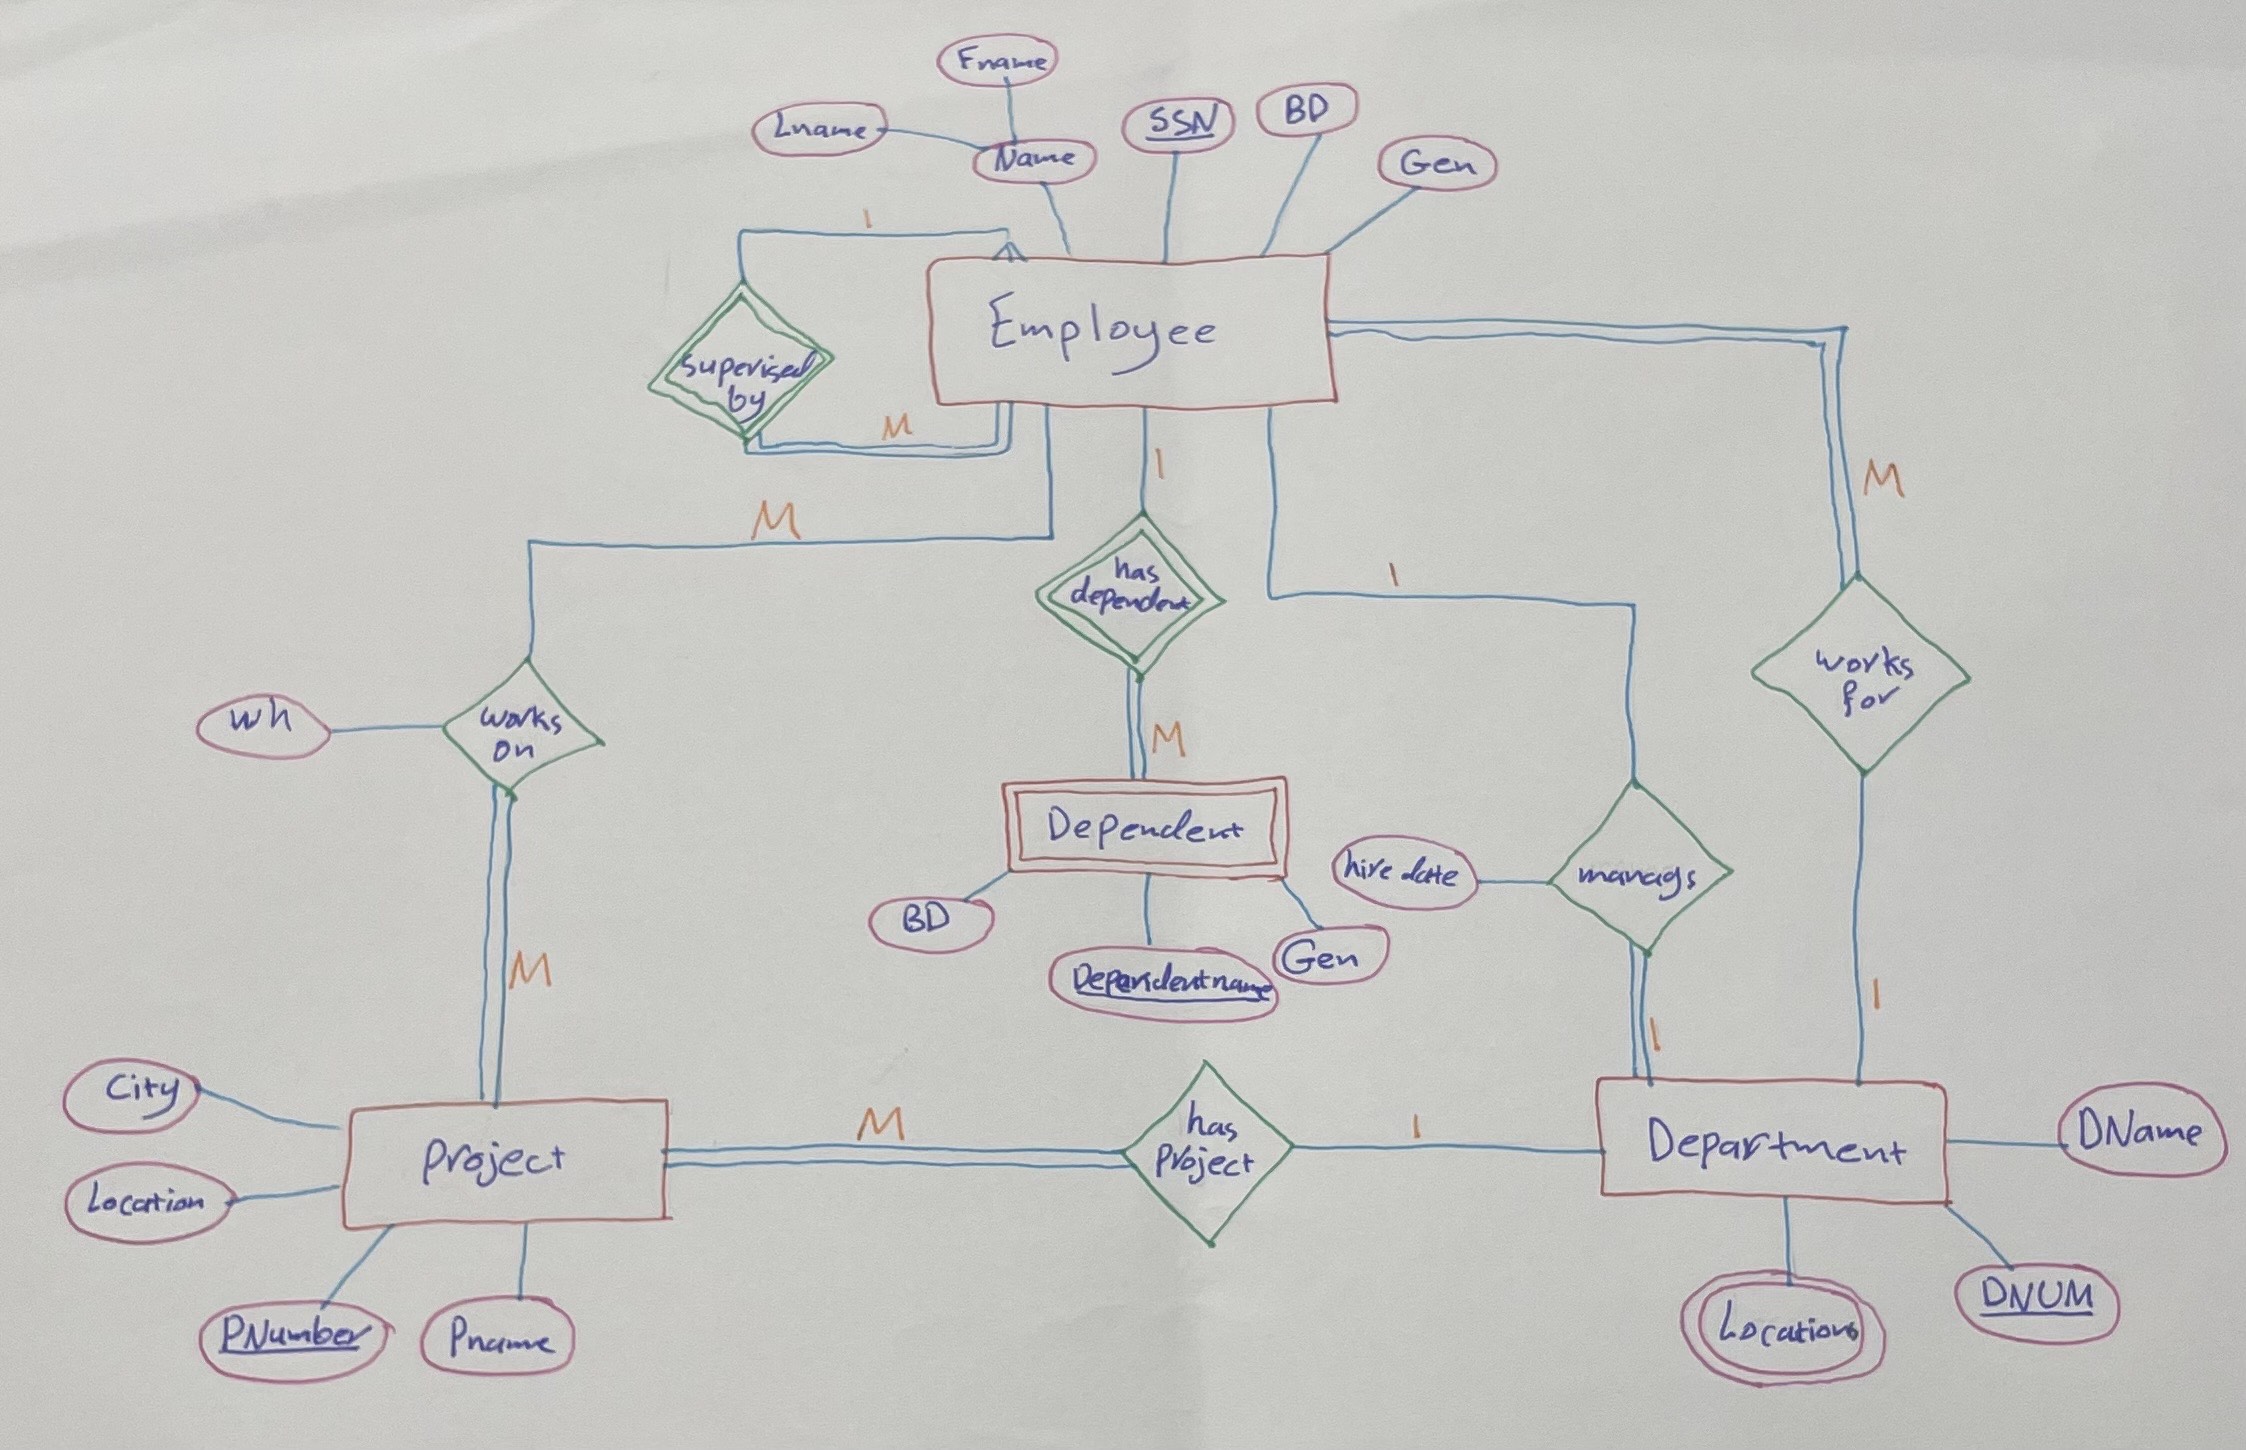 Fname
Lname
Name
SSN
BD
Gen
1
Employee
superised
by
M
M
1
1
M
has
dependent
works
for
Wh
works
on
M
Dependent
hire date
manags
BD
Dependentname
Gen
M
1
1
City
Location
Project
M
has
Project
1
Department
DName
PNumber
Pname
Locations
DNUM